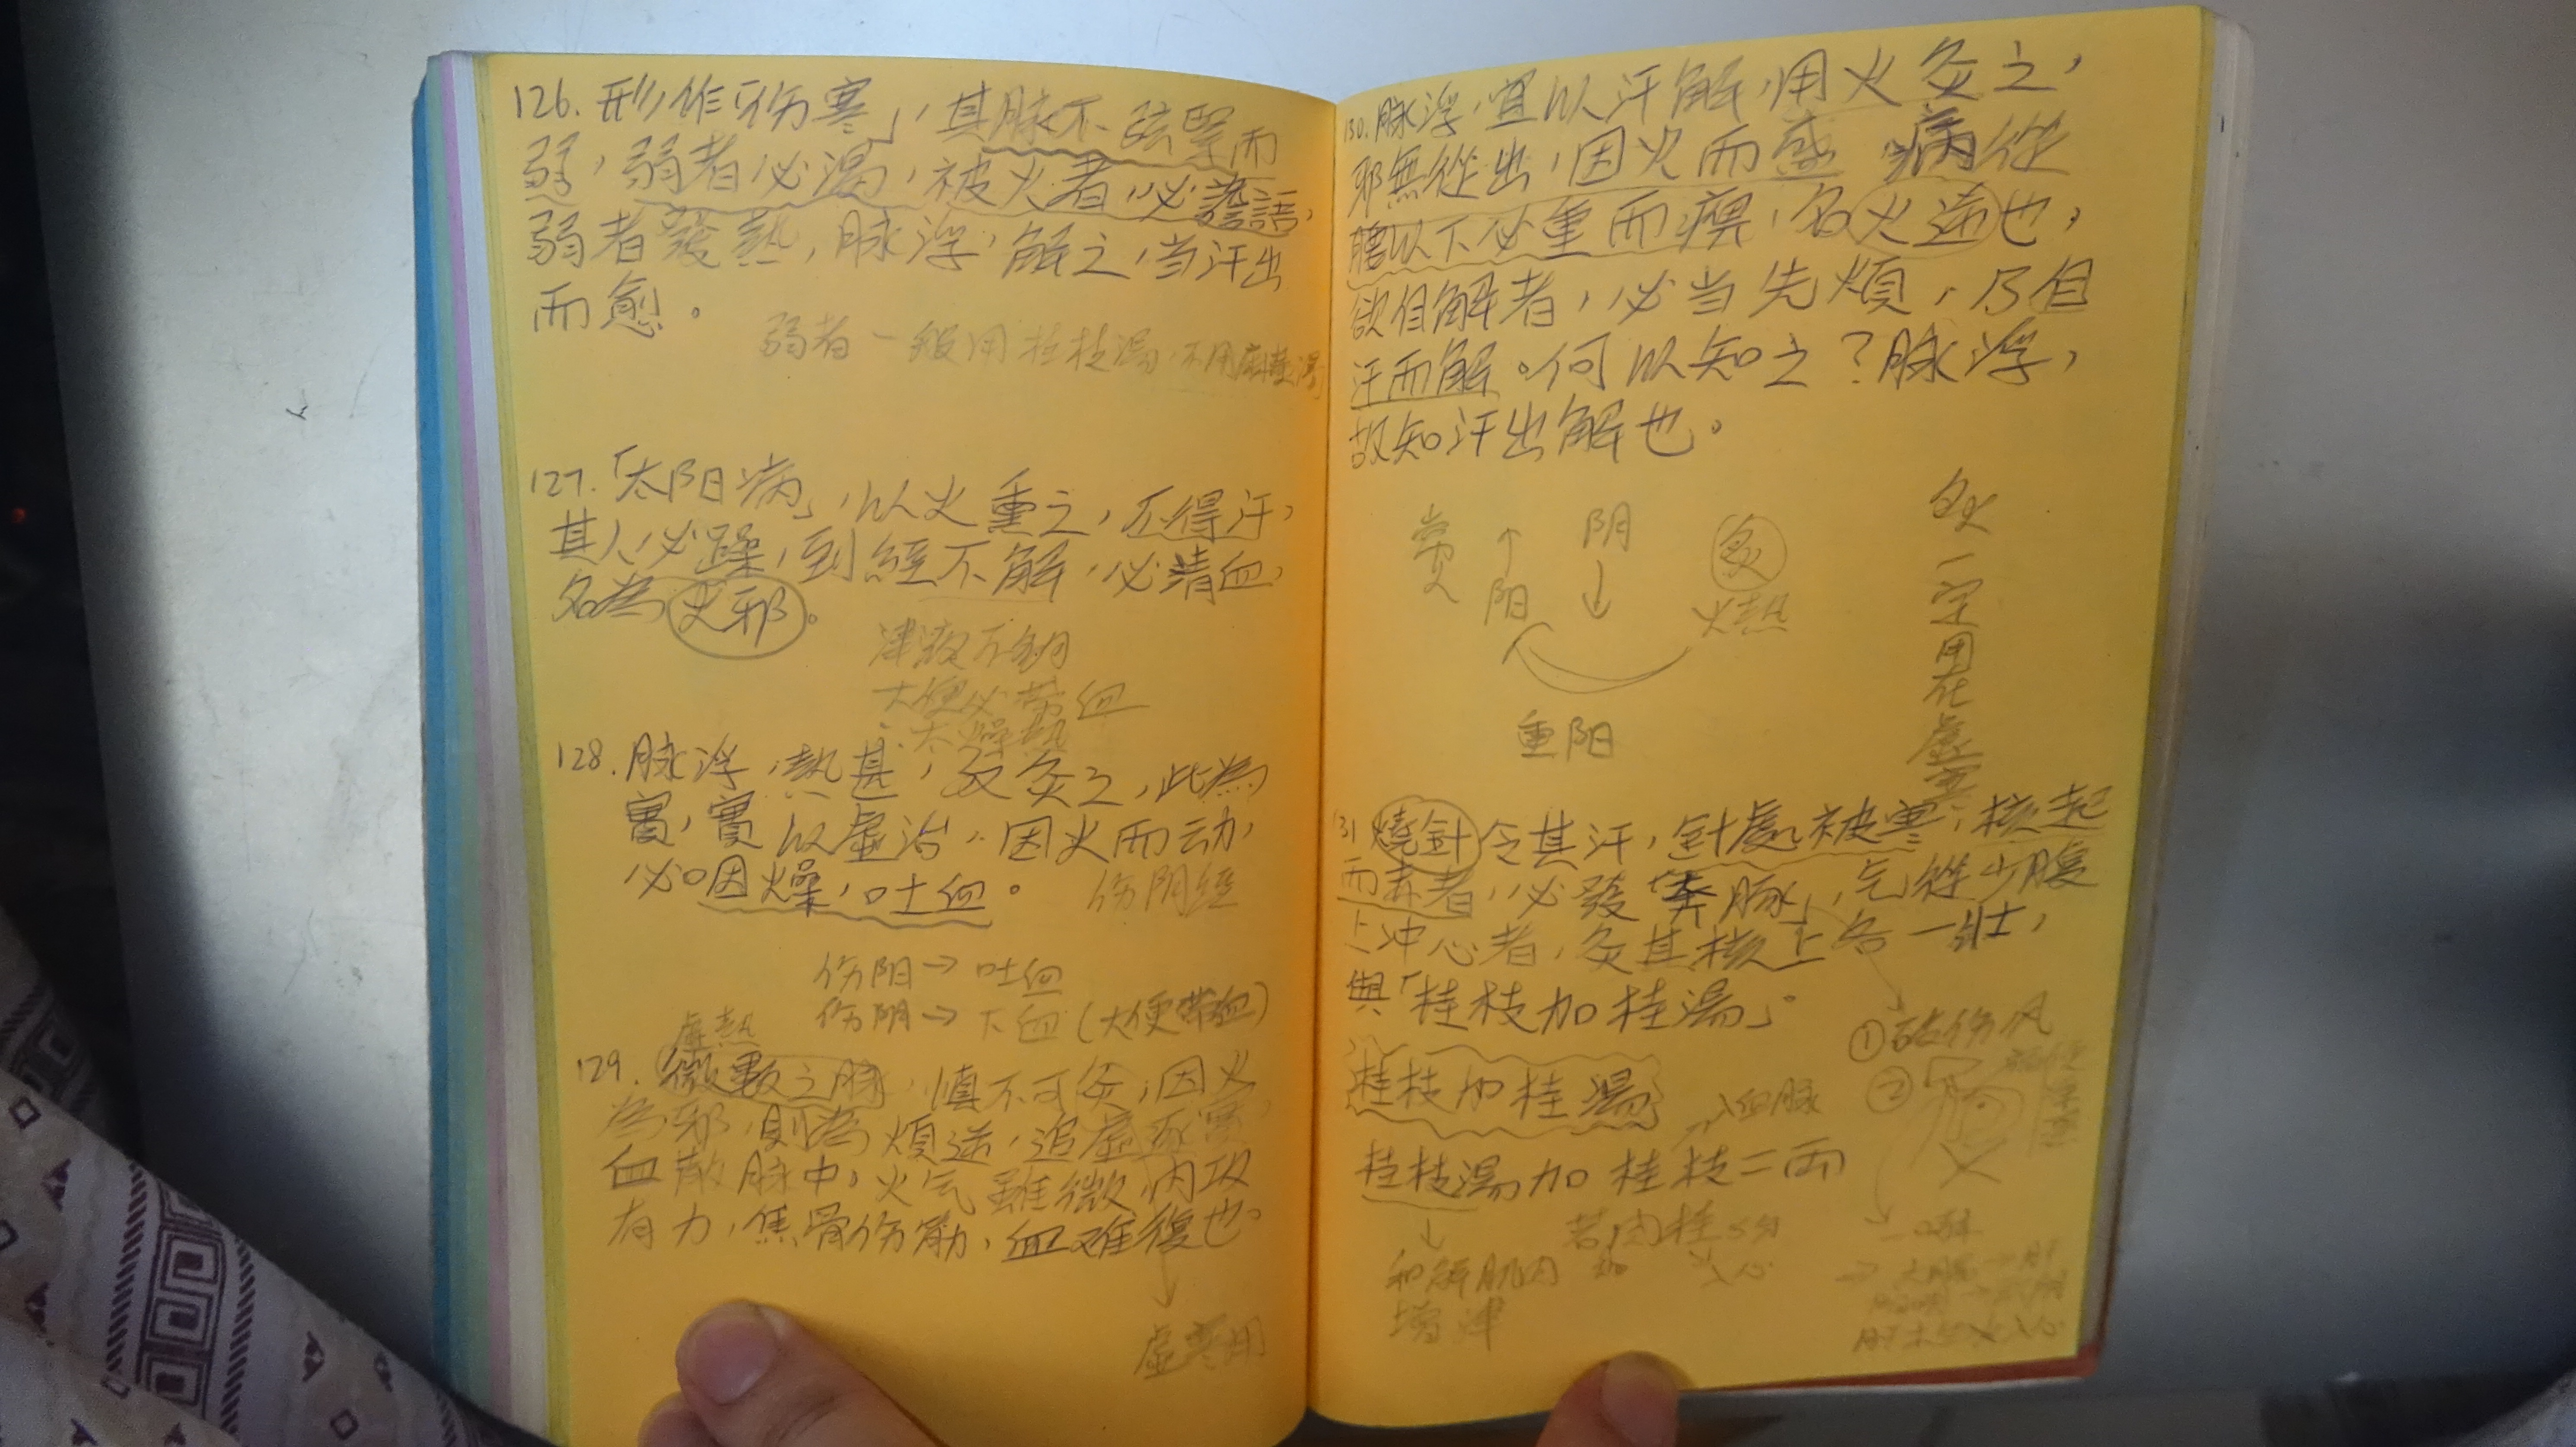 126. 形作「伤寒」，其脉不弦緊而
弱，弱者必渴，被火者，必譫語，
弱者發熱，脉浮，解之，当汗出
而愈。
弱者一般用桂枝湯，不用麻黄湯
127.「太阳病」，以火熏之，不得汗，
其人必躁，到經不解，必清血，
名為火邪。
津液不夠
大便必带血
太燥熱
128. 脉浮，熱甚，反灸之，此為
實，實以虛治，因火而动，
必咽燥，吐血。
伤阴經
伤阳→吐血
伤阴→下血(大便带血)
虛熱
129. 微數之脉，慎不可灸，因火
為邪，則為煩逆，追虛逐實，
血散脉中，火气雖微，内攻
有力，焦骨伤筋，血难復也。
虛寒用
130. 脉浮，宜以汗解，用火灸之，
邪無從出，因火而盛 病從
腰以下必重而痹，名火逆也，
欲自解者，必当先煩，乃自
汗而解。何以知之？脉浮，
故知汗出解也。
常 ↑阳 阴↓ 灸 火熱
重阳
灸一定用在虛寒
131 燒針令其汗，針處被寒，核起
而赤者，必發「奔豚」，气從少腹
上冲心者，灸其核上各一壯，
與「桂枝加桂湯」。
① 破伤风
②
桂枝加桂湯
入血脉
桂枝湯加桂枝二両
若肉桂5分
入心
和解肌肉
增津